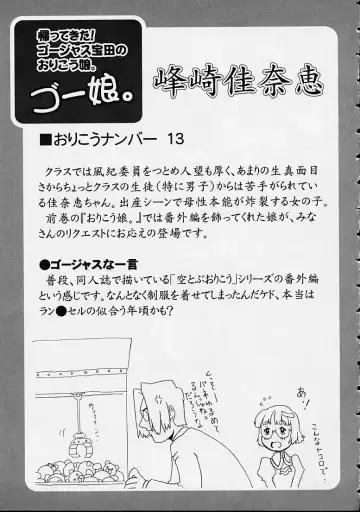 帰ってきた！
ゴージャス宝田の
おりこう娘。
ゴー娘。
峰崎佳奈恵
■おりこうナンバー 13
クラスでは風紀委員をつとめ人望も厚く、あまりの生真面目
さからちょっとクラスの生徒（特に男子）からは苦手がられてい
る佳奈恵ちゃん。出産シーンで母性本能が炸裂する女の子。
前巻の『おりこう娘。』では番外編を飾ってくれた娘が、みな
さんのリクエストにお応えの登場です。
●ゴージャスな一言
普段、同人誌で描いている「空とぶおりこう」シリーズの番外編
という感じです。なんとなく制服を着せてしまったんだケド、本当は
ラン●セルの似合う年頃かも？
あ！
こんなトコロで…